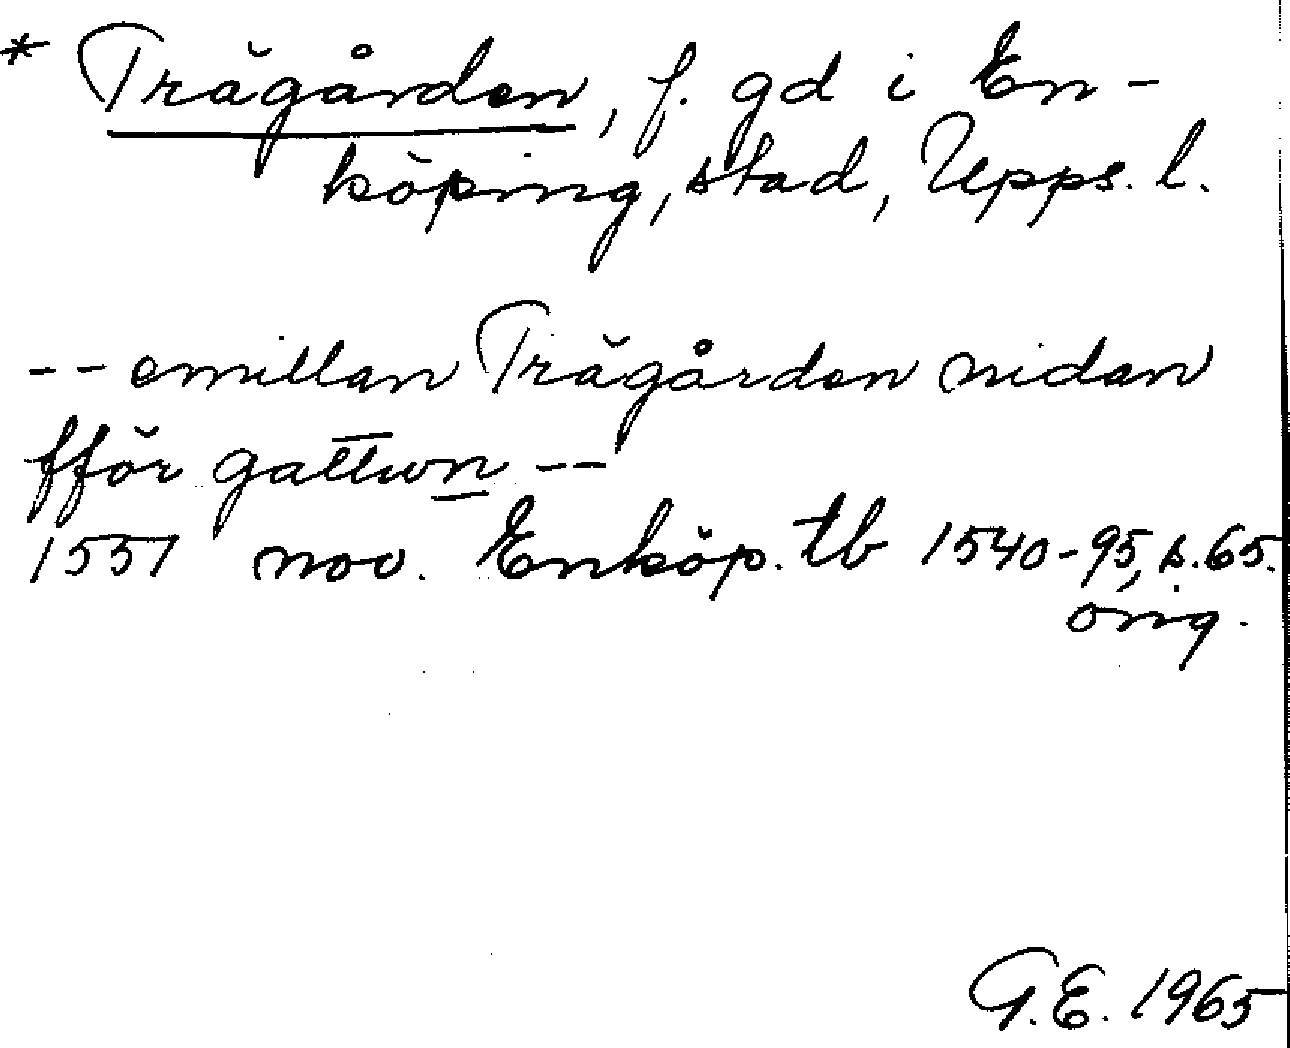 * Trägården, f. gd i En-
köping, stad, Upps. l.
-- emillan Trägården nidan
fför gattwn --
1551 nov. Enköp. tb 1540-95, s. 65.
orig.
G.E. 1965